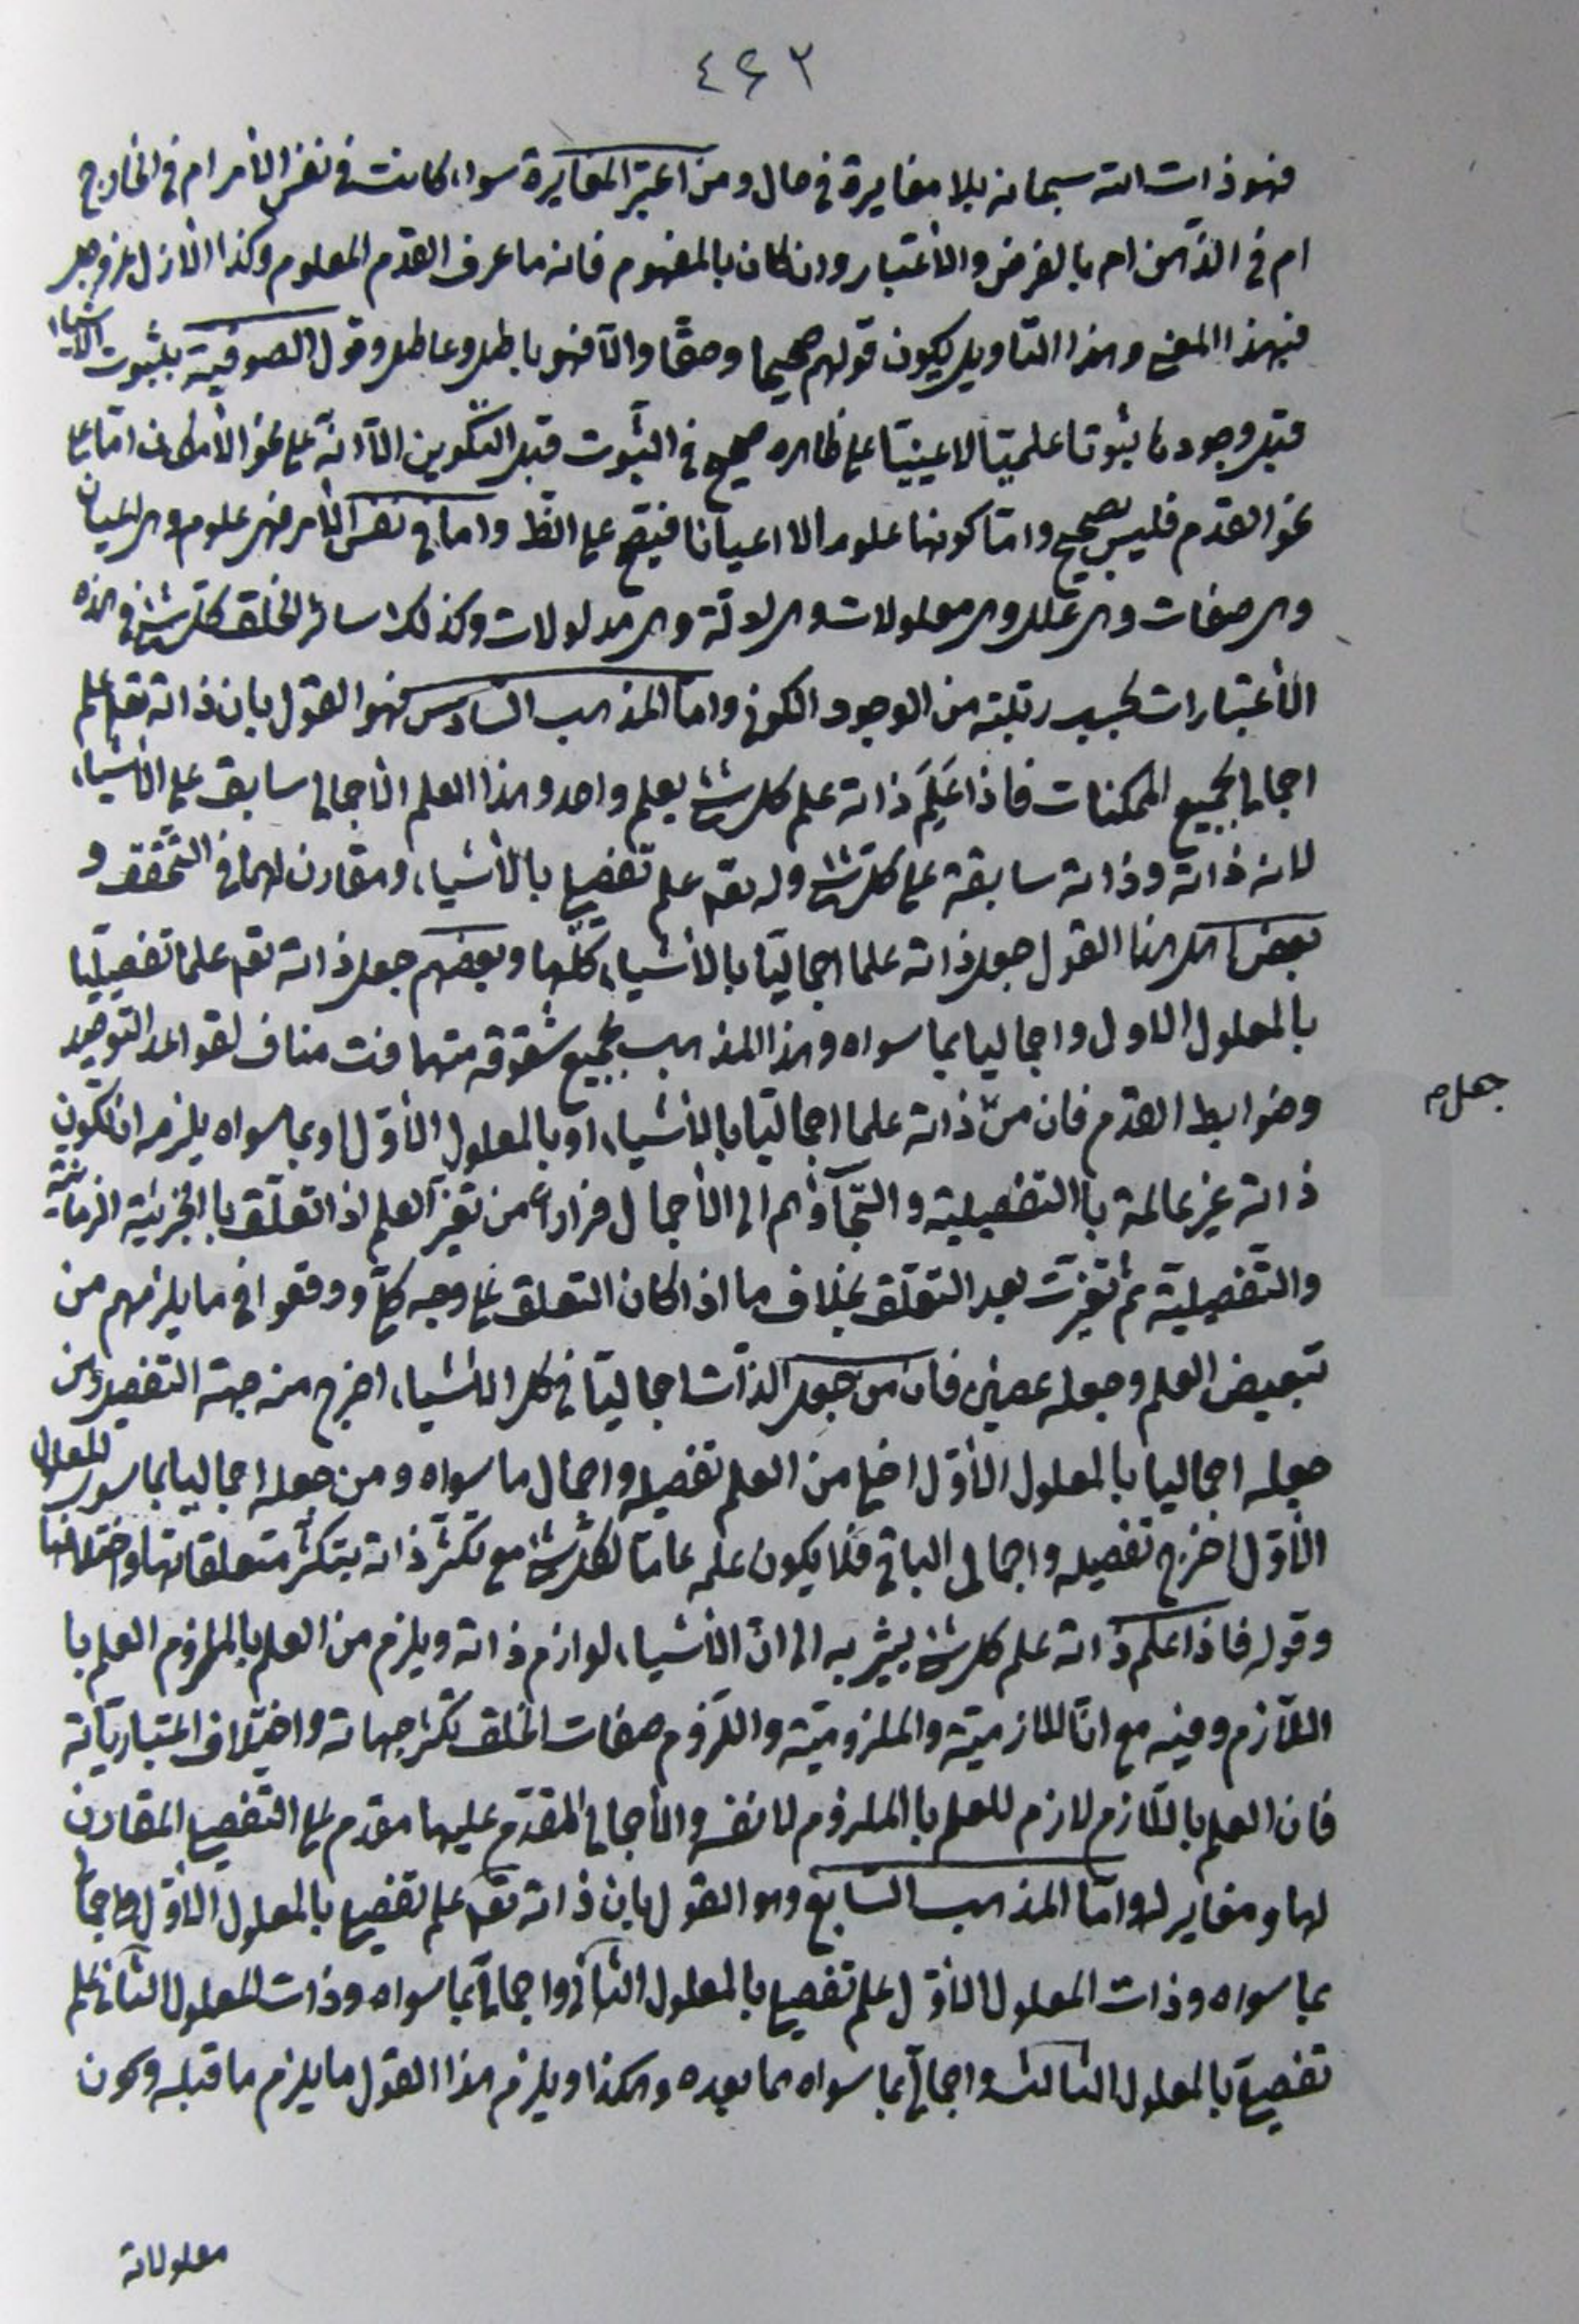 ٤٤٢
فهو ذات الله سبحانه بلا مغايرة في حال ومن اعتبر المغايرة سواء كانت في نفس الأمر ام في الخارج
ام في الذهن ام بالفرض والأعتبار وان كان بالمفهوم فانه ما عرف القدم المعلوم وكذا الأزل عز وجل
فبهذا المعنى وهذا التأويل يكون قولهم صحيحا وحقّا والّا فهو باطل وعاطل وقول الصوفية بثبوت الأشياء
قبل وجودها ثبوتا علميّا لا عينيّا على ظاهره صحيح في الثبوت قبل التكوين الّا انّه على نحو الأمكان امّا على
نحو القدم فليس بصحيح وامّا كونها علوما لا اعيانا فيتّجه على الظ واما في نفس الأمر فهي علوم وهي اعيان
وهي صفات وهي علل وهي معلولات وهي ادلّة وهي مدلولات وكذلك سائر الخلق كلّ شئ في هذه
الأعتبارات بحسب رتبته من الوجود الكوني وامّا المذهب السّادس فهو القول بان ذاته تع علم
اجمالي بجميع الممكنات فاذا عَلِمَ ذاته علم كل شئ بعلم واحد وهذا العلم الأجمالي سابق على الأشياء
لانه ذاته وذاته سابقة على كلّ شئ وله تع علم تفصيلي بالأشياء ومقارن لها في التحقّق و
بعض اهل هذا القول جعل ذاته علما اجماليّا بالأشياء كلّها وبعضهم جعل ذاته تع علما تفصيليّا
بالمعلول الاول واجماليا بما سواه وهذا المذهب بجميع شقوقه متهافت مناف لقواعد التوحيد
وضوابط القدم فان من ذاته علما اجماليّا بالأشياء او بالمعلول الأوّل او بما سواه يلزمه ان تكون
جعل صح
ذاته غير عالمة بالتفصيلية والتجآؤهم الى الأجمال فرارا من تغيّر العلم اذا تعلّق بالجزئية الزمانيّة
والتّفصيليّة ثم تغيّرت بعد التعلّق بخلاف ما اذا كان التعلق على وجه كلّي ووقعوا في ما يلزمهم من
تبعيض العلم وجعله عضين فان من جعل الذّات اجماليّا في كل الأشياء اخرج منه جهة التفصيل ومن
جعله اجماليا بالمعلول الأوّل اخلى من العلم تفصيله واجمال ما سواه ومن جعله اجماليا بما سوى المعلول
الأوّل اخرج تفصيله واجمالى الباقي فلا يكون علمه عامّا لكل شئ مع تكثّر ذاته بتكثّر متعلقاتها واختلافها
وقوله فاذا علم ذاته علم كل شئ يشير به الى انّ الأشياء لوازم ذاته ويلزم من العلم بالملزوم العلم با
اللّازم وفيه مع انّ اللازميّة والملزوميّة واللّزوم صفات الخلق تكثّر جهاته واختلاف اعتباريّاته
فان العلم باللّازم لازم للعلم با الملزوم لا نفسه والأجمالي المقدّم عليها مقدم على التفصيلي المقارن
لها ومغاير له وامّا المذهب السّابع وهو القول بان ذاته تع علم تفصيلي بالمعلول الأوّل واجمالي
بما سواه وذات المعلول الأوّل علم تفصيلي بالمعلول الثّاني واجمالي بما سواه وذات المعلول الثّاني علم
تفصيلي بالمعلول الثالث واجمالي بما سواه مما بعده وهكذا ويلزم هذا القول ما يلزم ما قبله وكون
معلولاته